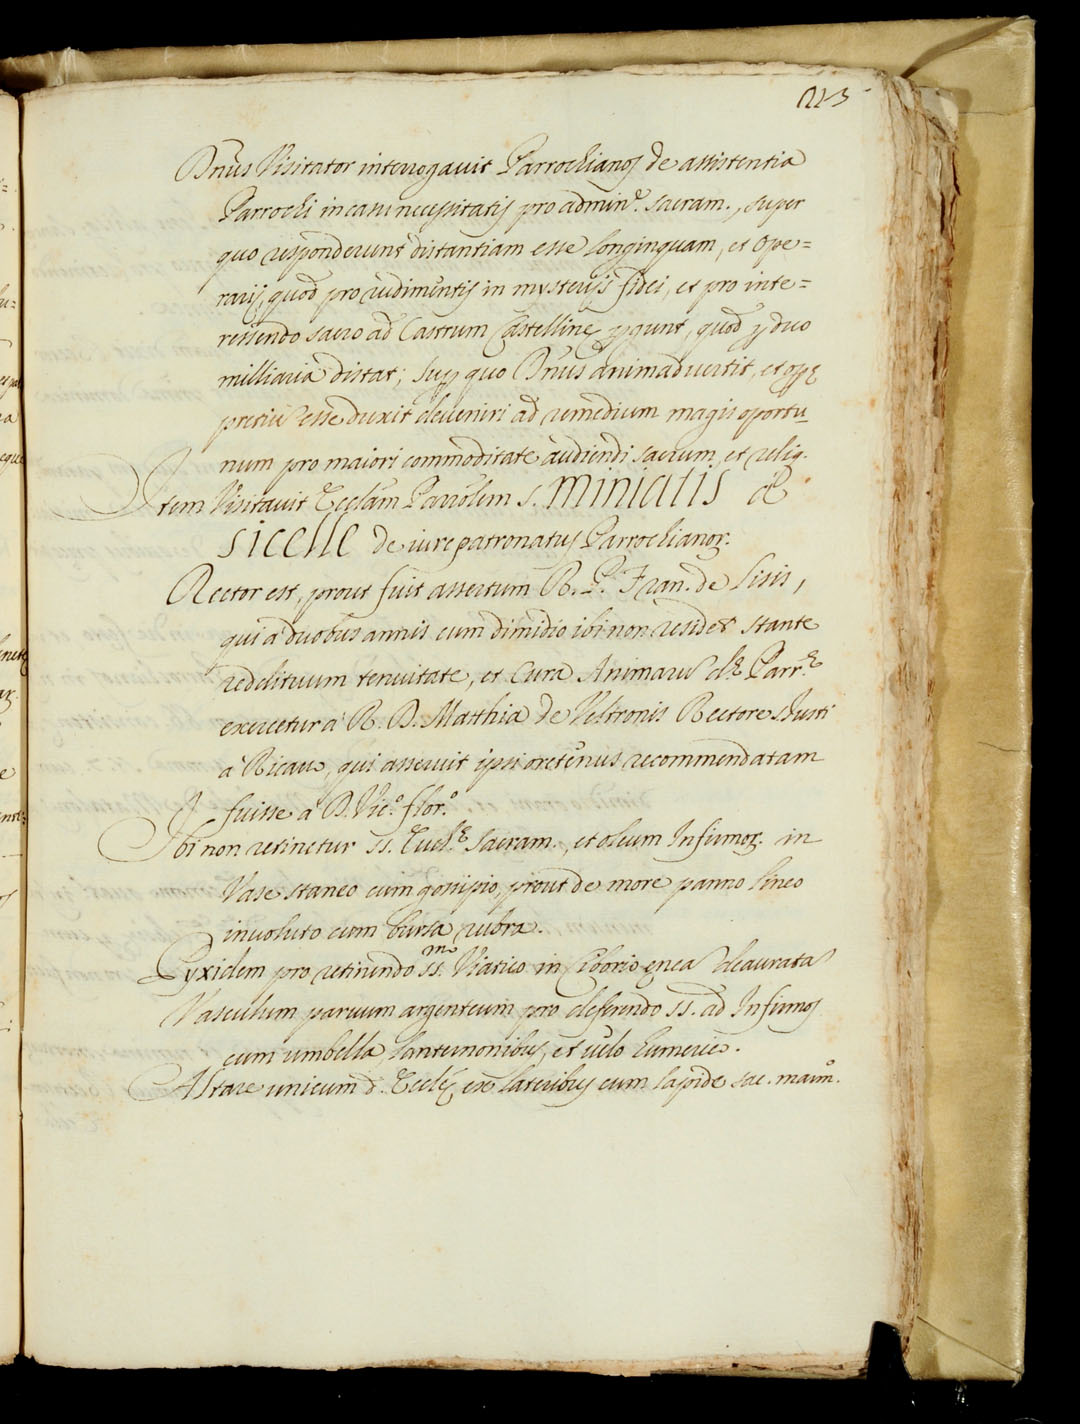 223
Dn̄us Visitator interrogauit Parrochianos de assistentia
Parrochi in casu necessitatis pro admin.e sacram., super
quo responderunt distantiam esse longinquam, et Ope=
rarij, quod pro rudimentis in mysterijs fidei, et pro inte=
ressendo sacro ad Castrum Castellinę pgunt, quod p duo
milliaria distat; sup quo Dn̄us animaduertit, et opę
pretiū esse duxit deueniri ad remedium magis oportu_
num pro maiori commoditate audiendi sacrum, et relig.
Item Visitauit Ecclām Parrōlem S. Miniatis de
Sicelle de iure patronatus Parrochianor.
Rector est, prout fuit assertum R. P. Fran. de Lisis,
qui a duobus annis cum dimidio ibi non residet stante
reddituum tenuitate, et Cura Animarū d.e Parr.e
exercetur a R. D. Matthia de Veltronis Rectore S. Justi
a Ricau, qui asseruit ipsi oretenus recommendatam
fuisse a D. Vic.o flor.o
Ibi non retinetur SS. Euch.e Sacram., et oleum Infirmor. in
Vase staneo cum gossipio, prout de more panno lineo
inuoluto cum bursa rubra.
Pyxidem pro retinendo SS.mo Viatico in Ciborio enea deaurata
Vasculum paruum argenteum pro deferendo SS. ad Infirmos
cum umbella lanternonibus, et uelo humerie.
Altare unicum d. Ecclę ex lateribus cum lapide sac. maim.o